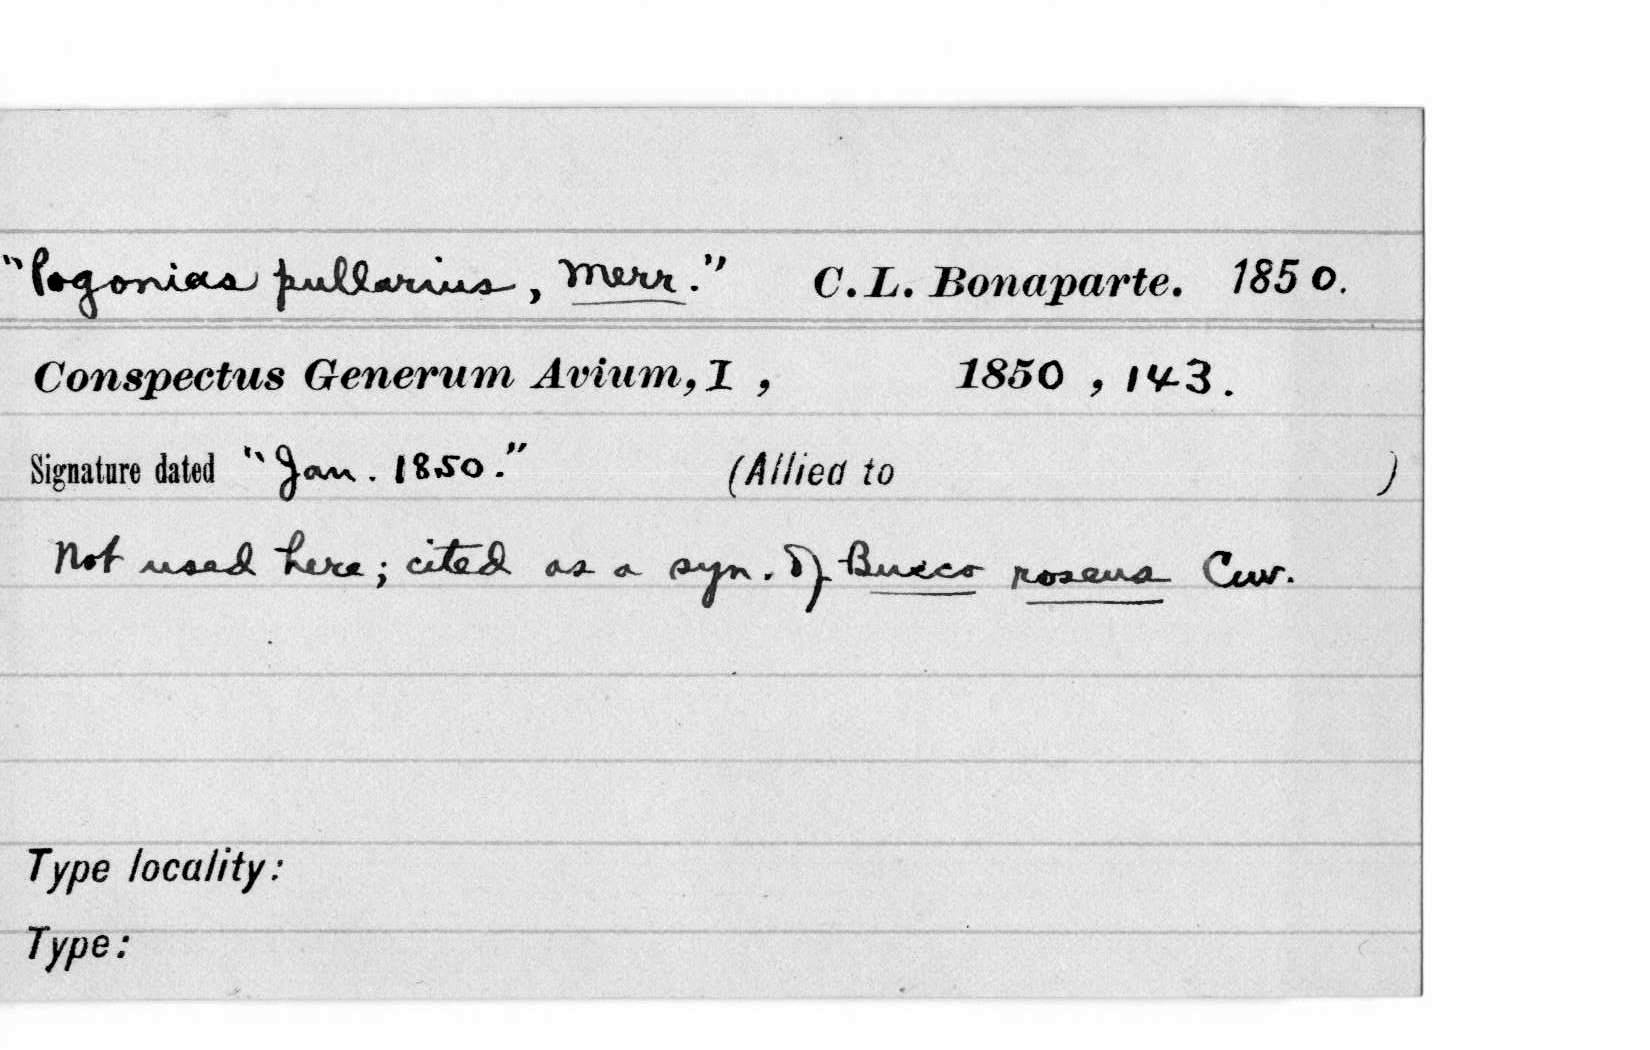 "Pogonias pullarius, Merr." C.L. Bonaparte. 1850.
Conspectus Generum Avium, I, 1850, 143.
Signature dated "Jan. 1850." (Allied to )
Not used here; cited as a syn. of Bucco roseus Cuv.
Type locality:
Type: